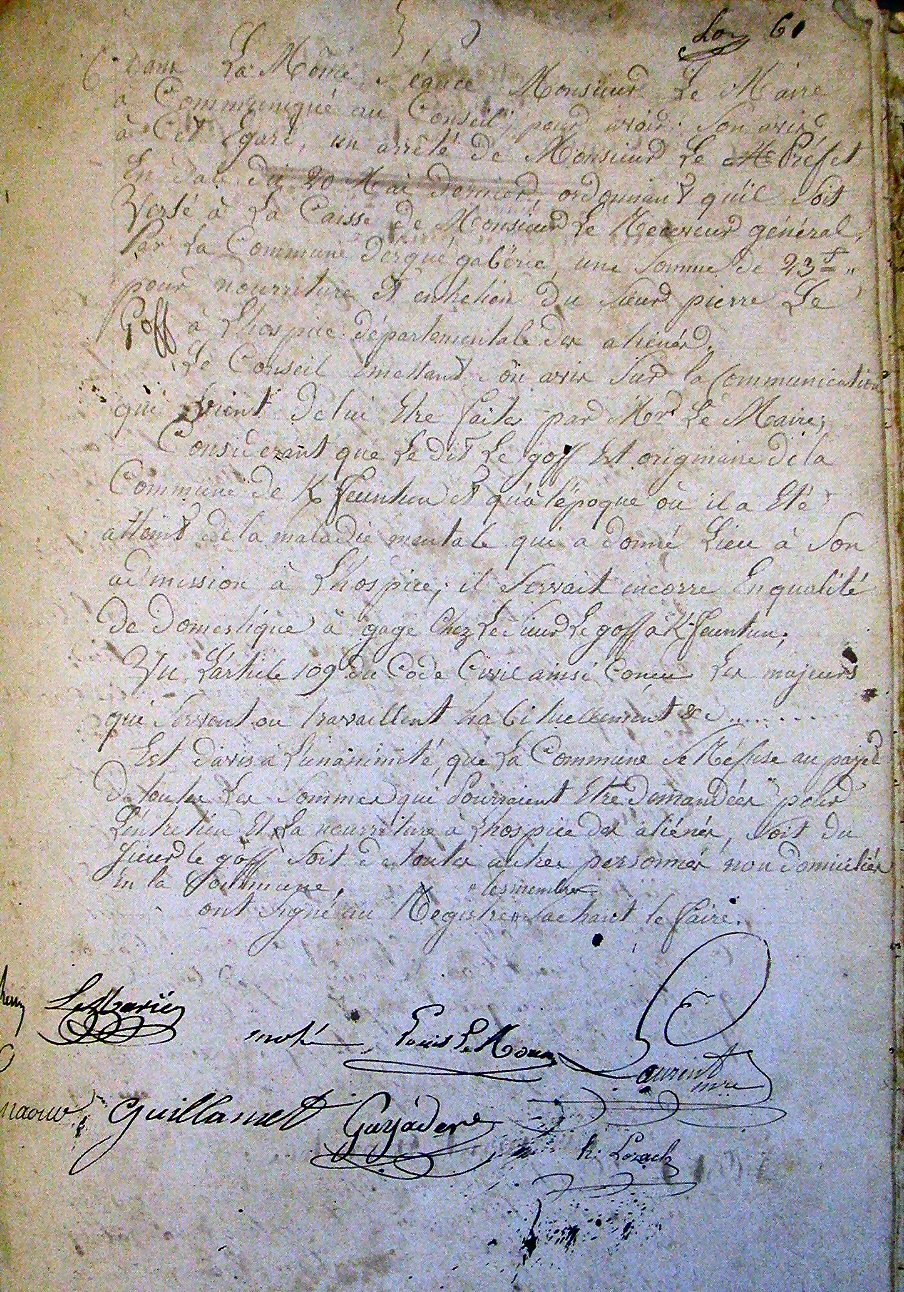 61
Dans La Même Séance Monsieur Le Maire
à Communiqué au Conseil, pour avoir Son avis
à Cet Egard, un arrêté de Monsieur Le Préfet
En date du 20 Mai dernier, ordonnant qu'il Soit
Versé à La Caisse de Monsieur Le Receveur général,
Par La Commune d'ergué gabéric, une Somme de 23f
pour nourriture Et entretien du Sieur pierre Le
Goff à L'hospice départementale des aliénés,
Le Conseil émettant Son avis Sur la Communication
qui Vient de lui Etre faite par Mr Le Maire,
Considerant que Le dit Le goff Est originaire de la
Commune de K/feunteun Et qu'à l'époque où il a Eté
atteint de la maladie mentale qui a donné Lieu à Son
admission à L'hospice, il Servait encorre En qualité
de domestique à gage Chez Le Sieur Le goff à K/feunteun,
Vu L'article 109 du Code Civil ainsi Conçu Les majeurs
qui Servent ou travaillent habituellement &c ........
Est d'avis à L'unanimité, que La Commune Se Réfuse au payet
de toutes Les Sommes qui Pourraient Etre demandées pour
L'entretien Et La nourriture à L'hospice des aliénés, Soit du
Sieur Le goff Soit de toutes autres personnes non domiciliés
En la Commune,
les membres
ont Signé au Registre Sachant le faire.
LeMarié
Louis Le
Laurent
mre
Guillamet
Gurjader
h: Lozach